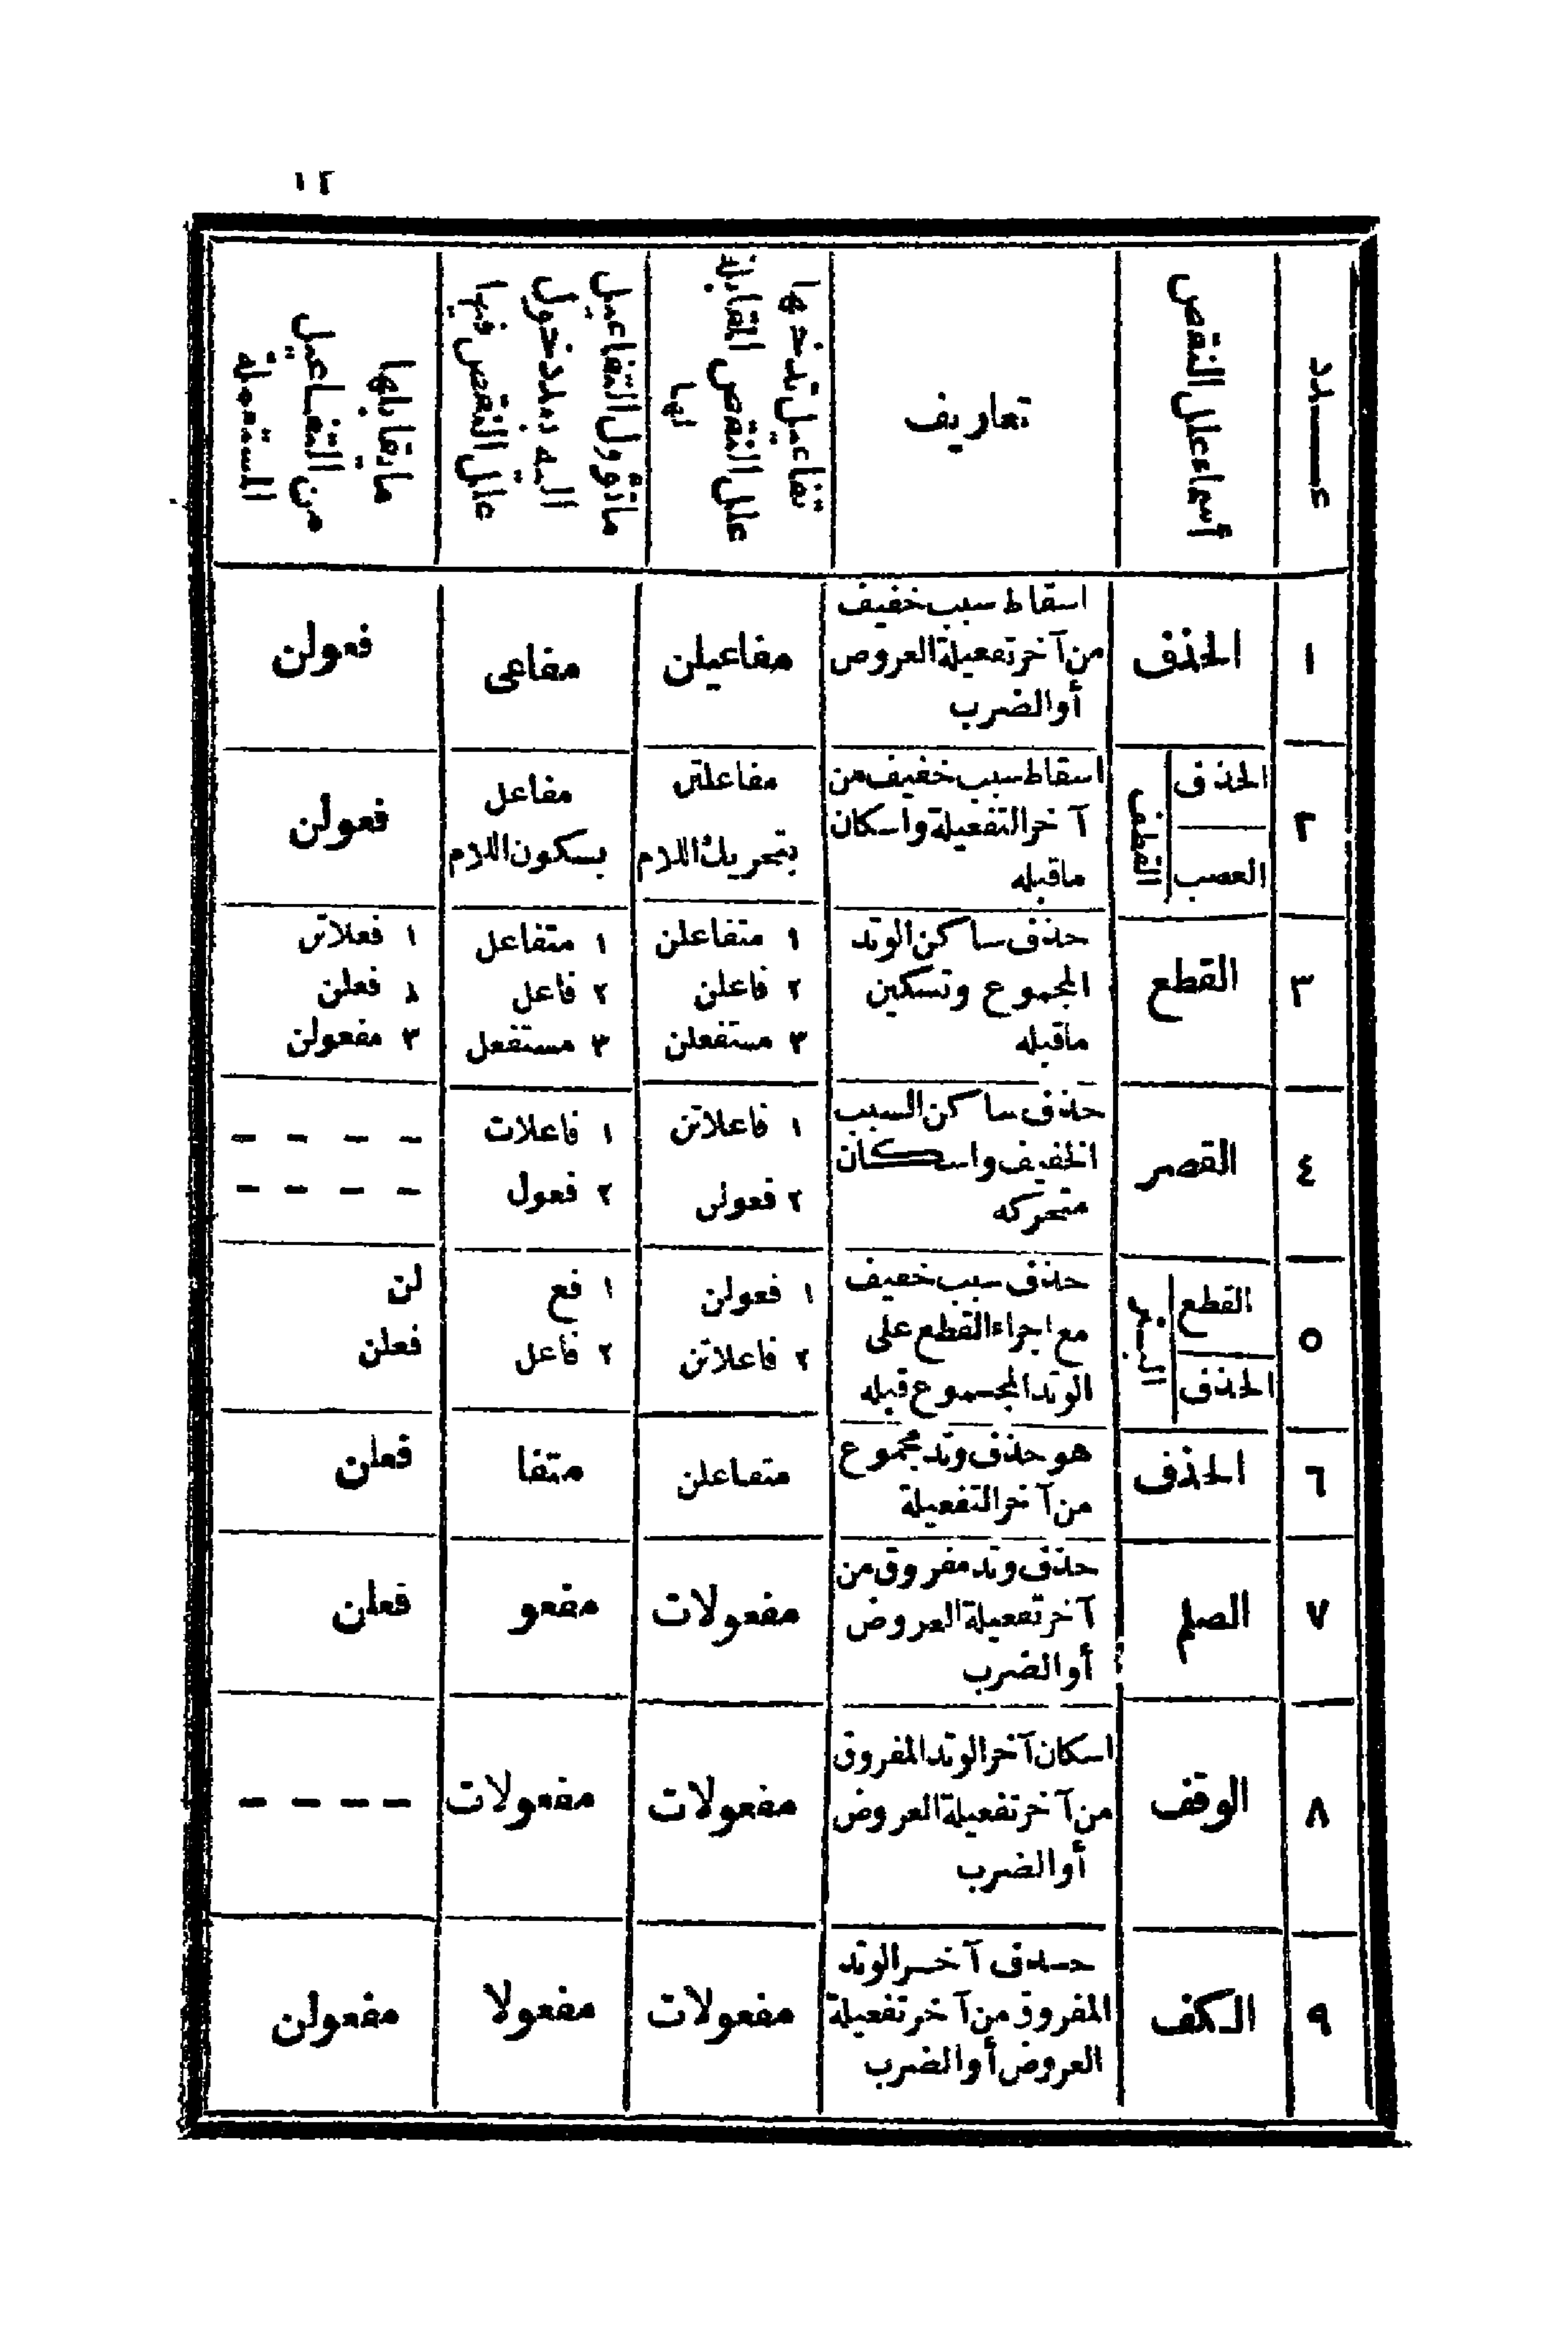 ١٢
عدد
أسماء علل النقص
تعاريف
تفاعيل تدخلها
علل النقص المقابلة
لها
ما تؤول التفاعيل
اليه بعد دخول
علل النقص فيها
ما يقابلها
من التفاعيل
المستعملة
١
الحذف
اسقاط سبب خفيف
من آخر تفعيلة العروض
أو الضرب
مفاعيلن
مفاعى
فعولن
٢
الحذف
العصب
القطف
اسقاط سبب خفيف من
آخر التفعيلة واسكان
ما قبله
مفاعلتن
بتحريك اللام
مفاعل
بسكون اللام
فعولن
٣
القطع
حذف ساكن الوتد
المجموع وتسكين
ما قبله
١ متفاعلن
٢ فاعلن
٣ مستفعلن
١ متفاعل
٢ فاعل
٣ مستفعل
١ فعلاتن
٢ فعلن
٣ مفعولن
٤
القصر
حذف ساكن السبب
الخفيف واسكان
متحركه
١ فاعلاتن
٢ فعولن
١ فاعلات
٢ فعول
- - - -
- - - -
٥
القطع
الحذف
البتر
حذف سبب خفيف
مع اجراء القطع على
الوتد المجموع قبله
١ فعولن
٢ فاعلاتن
١ فع
٢ فاعل
لن
فعلن
٦
الحذف
هو حذف وتد مجموع
من آخر التفعيلة
متفاعلن
متفا
فعلن
٧
الصلم
حذف وتد مفروق من
آخر تفعيلة العروض
أو الضرب
مفعولات
مفعو
فعلن
٨
الوقف
اسكان آخر الوتد المفروق
من آخر تفعيلة العروض
أو الضرب
مفعولات
مفعولات
- - - -
٩
الكف
حذف آخر الوتد
المفروق من آخر تفعيلة
العروض أو الضرب
مفعولات
مفعولا
مفعولن